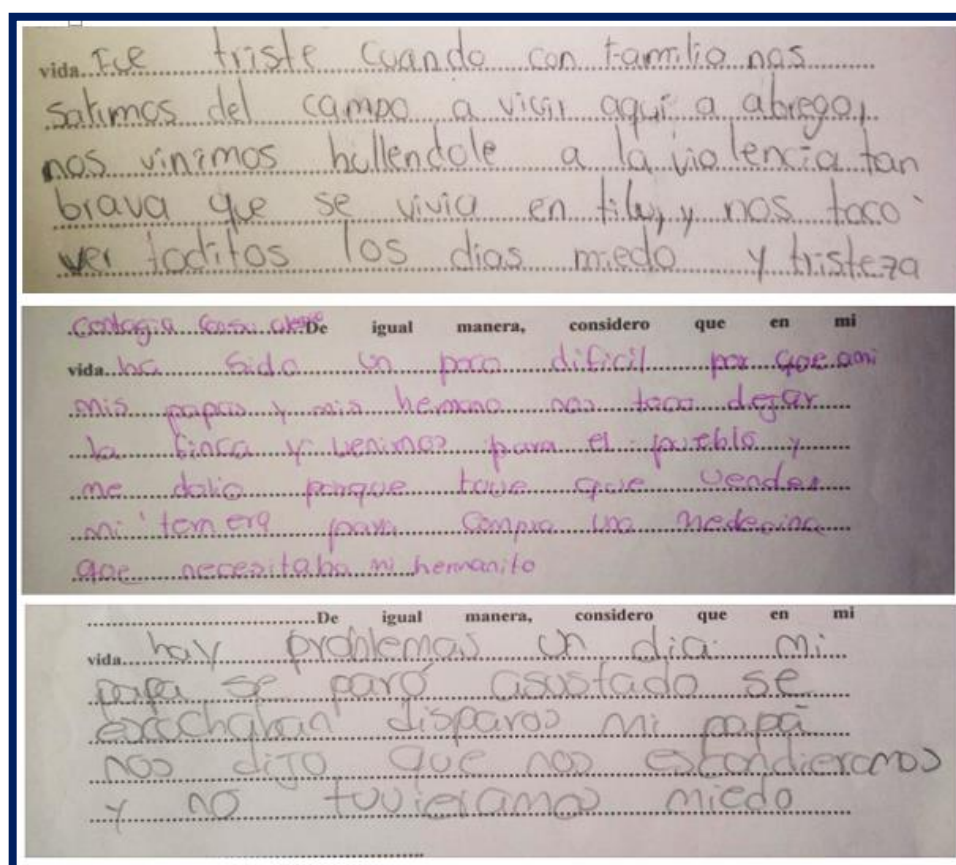 vida. Fue triste cuando con familia nos
salimos del campo a vivir aquí a abrego,
nos vinimos hullendole a la violencia tan
brava que se vivia en y nos toco
ver toditos los dias miedo y tristeza
De igual manera, considero que en mi
vida. ha sido un poco dificil por que a mi
mis papas y mis hemano nos toco dejar
la finca y venimos para el pueblo y
me dolio porque tuve que vender
mi ternera para compra una medecina
que necesitaba mi hermanito
De igual manera, considero que en mi
vida. hay problemas un dia mi
papa se paró asustado se
escochaban disparos mi papá
nos dijo que nos escondieramos
y no tuvieramos miedo